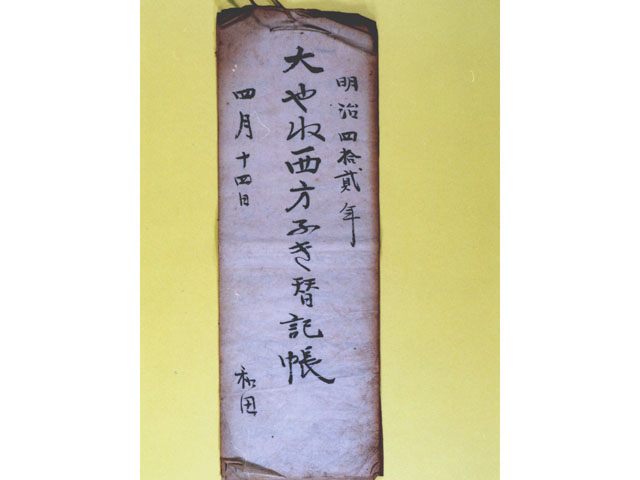 明治四拾貳年
大やね西方ふき替記帳
四月十四日
和田